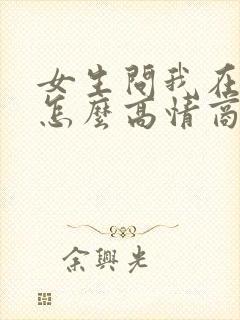 女生問我在
怎麼高情商
余興光